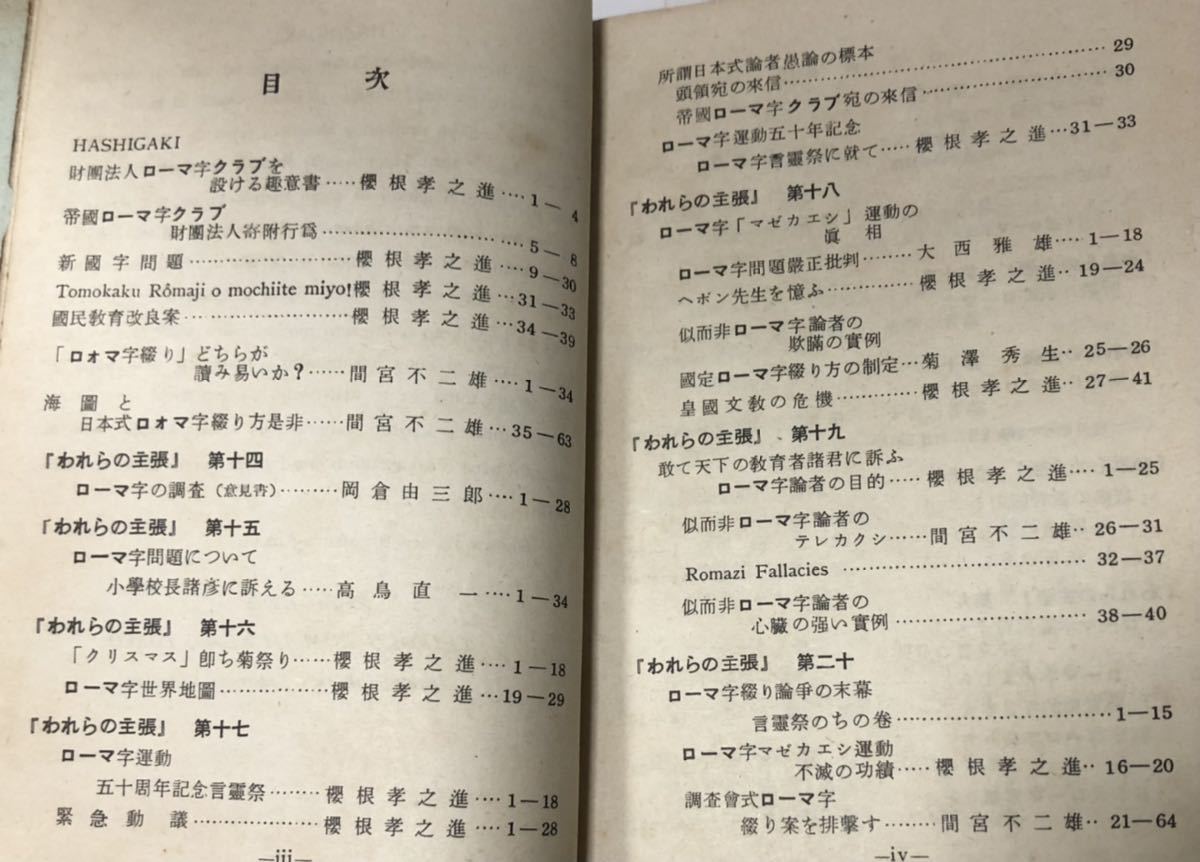 目次
HASHIGAKI
財團法人ローマ字クラブを
設ける趣意書‥‥‥櫻根孝之進‥‥1—4
帝國ローマ字クラブ
財團法人寄附行爲‥‥‥‥‥‥‥‥5—8
新國字問題‥‥‥‥‥‥‥‥櫻根孝之進‥‥9—30
Tomokaku Rômaji o mochiite miyo!櫻根孝之進‥‥31—33
國民敎育改良案‥‥‥‥‥‥‥‥櫻根孝之進‥‥34—39
「ロォマ字綴り」どちらが
讀み易いか？‥‥‥間宮不二雄‥‥1—34
海圖と
日本式ロォマ字綴り方是非‥‥間宮不二雄‥‥35—63
『われらの主張』　第十四
ローマ字の調査（意見書）‥‥‥‥岡倉由三郎‥‥1—28
『われらの主張』　第十五
ローマ字問題について
小學校長諸彦に訴える‥‥‥高鳥直一‥‥1—34
『われらの主張』　第十六
「クリスマス」卽ち菊祭り‥‥‥櫻根孝之進‥‥1—18
ローマ字世界地圖‥‥‥‥‥‥櫻根孝之進‥‥19—29
『われらの主張』　第十七
ローマ字運動
五十周年記念言靈祭‥‥‥‥櫻根孝之進‥‥1—18
緊急動議‥‥‥‥‥‥‥‥櫻根孝之進‥‥1—28
—iii—
所謂日本式論者愚論の標本‥‥‥‥‥‥‥‥29
頭領宛の來信‥‥‥‥‥‥‥‥‥‥30
帝國ローマ字クラブ宛の來信‥‥‥‥‥‥‥‥
ローマ字運動五十年記念
ローマ字言靈祭に就て‥‥‥櫻根孝之進‥‥31—33
『われらの主張』　第十八
ローマ字「マゼカエシ」運動の
眞相
ローマ字問題嚴正批判‥‥‥‥大西雅雄‥‥1—18
ヘボン先生を憶ふ‥‥‥‥‥‥櫻根孝之進‥‥19—24
似而非ローマ字論者の
欺瞞の實例
國定ローマ字綴り方の制定‥‥菊澤秀生‥‥25—26
皇國文敎の危機‥‥‥‥‥‥櫻根孝之進‥‥27—41
『われらの主張』　第十九
敢て天下の敎育者諸君に訴ふ
ローマ字論者の目的‥‥‥櫻根孝之進‥‥1—25
似而非ローマ字論者の
テレカクシ‥‥‥間宮不二雄‥‥26—31
Romazi Fallacies ‥‥‥‥‥‥‥‥‥‥‥‥32—37
似而非ローマ字論者の
心臟の强い實例‥‥‥‥‥‥‥‥38—40
『われらの主張』　第二十
ローマ字綴り論爭の末幕
言靈祭のちの卷‥‥‥‥‥‥‥‥‥‥‥1—15
ローマ字マゼカエシ運動
不滅の功績‥‥‥櫻根孝之進‥‥16—20
調査會式ローマ字
綴り案を排撃す‥‥‥‥間宮不二雄‥‥21—64
—iv—